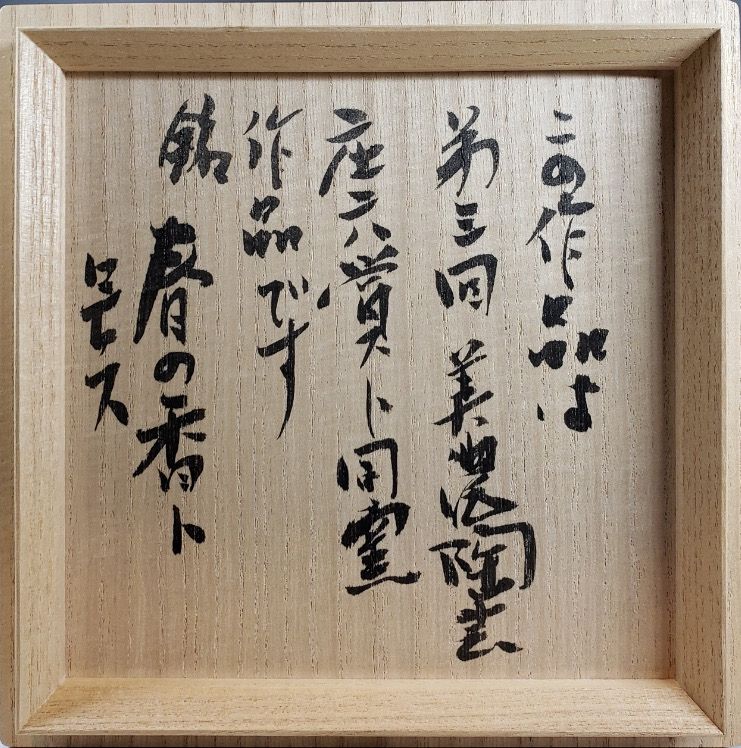 この作品は
第三回 美濃陶芸
庄六賞ト同窯
作品です
銘 春の香ト